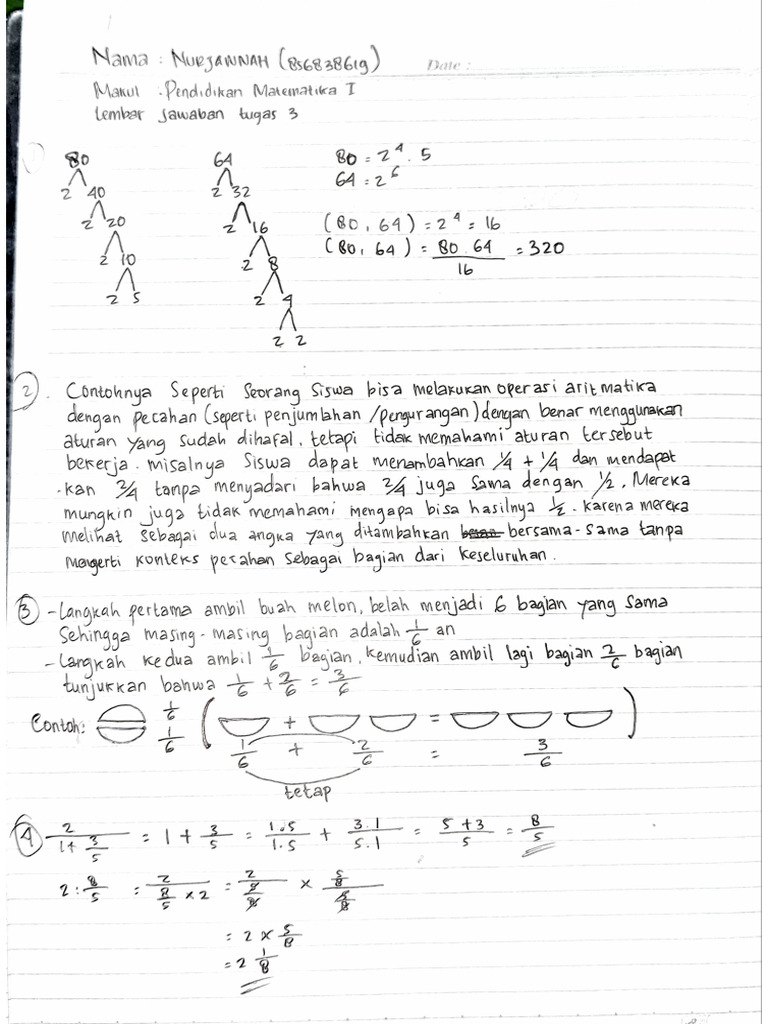 Nama : NURJANNAH (856838619) Date :
Makul : Pendidikan Matematika I
Lembar Jawaban tugas 3
1
80
2 40
2 20
2 10
2 5
64
2 32
2 16
2 8
2 4
2 2
80 = 2⁴ . 5
64 = 2⁶
(80, 64) = 2⁴ = 16
(80, 64) = 80 . 64 / 16 = 320
2. Contohnya Seperti Seorang Siswa bisa melakukan operasi aritmatika
dengan pecahan (seperti penjumlahan /pengurangan) dengan benar menggunakan
aturan yang sudah dihafal, tetapi tidak memahami aturan tersebut
bekerja. misalnya Siswa dapat menambahkan 1/4 + 1/4 dan mendapat
-kan 2/4 tanpa menyadari bahwa 2/4 juga Sama dengan 1/2. Mereka
mungkin juga tidak memahami mengapa bisa hasilnya 1/2. karena mereka
melihat sebagai dua angka yang ditambahkan bersama-sama tanpa
mengerti konteks pecahan sebagai bagian dari keseluruhan.
3 - Langkah pertama ambil buah melon, belah menjadi 6 bagian yang sama
Sehingga masing-masing bagian adalah 1/6 an
- Langkah kedua ambil 1/6 bagian, kemudian ambil lagi bagian 2/6 bagian
tunjukkan bahwa 1/6 + 2/6 = 3/6
Contoh: 1/6 1/6 ( + = )
1/6 + 2/6 = 3/6
tetap
4 2 / (1 + 3/5) = 1 + 3/5 = 1.5/1.5 + 3.1/5.1 = 5+3/5 = 8/5
2 : 8/5 = 2 / (8/5 × 2) = 2 / (8/8) × (5/8) / (5/8)
= 2 × 5/8
= 2 1/8